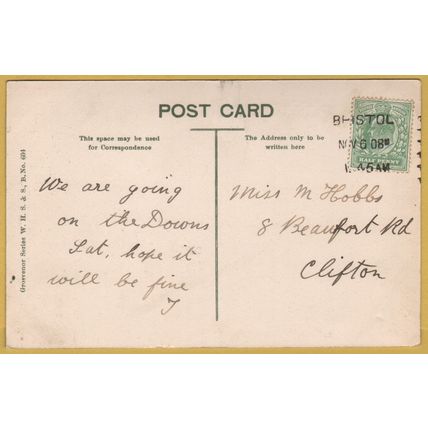 POST CARD
This space may be used
for Correspondence
The Address only to be
written here
BRISTOL
NOV 6 08
45AM
HALF PENNY
Grosvenor Series W. H. S. & S., B. No. 604
We are going
on the Downs
Sat, hope it
will be fine
J
Miss M Hobbs
8 Beaufort Rd
Clifton